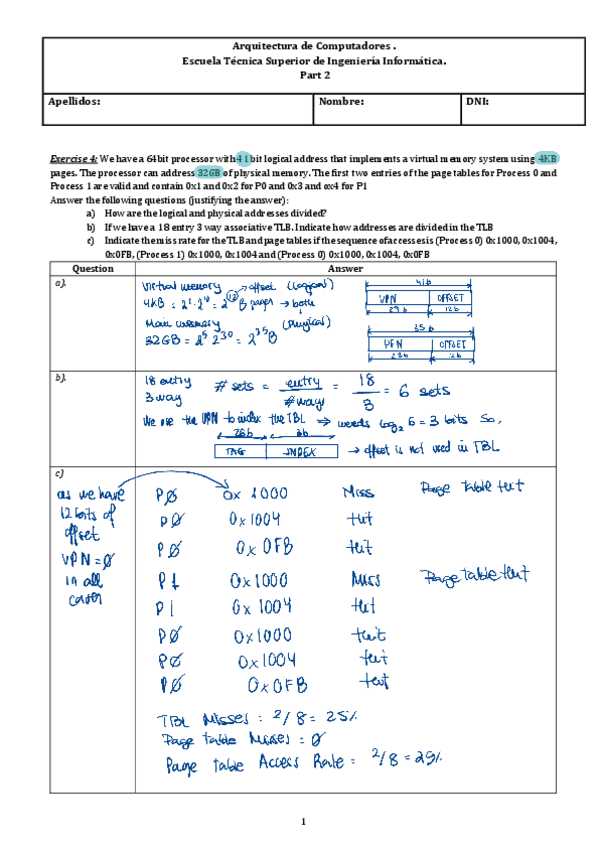 Arquitectura de Computadores .
Escuela Técnica Superior de Ingeniería Informática.
Part 2
Apellidos: Nombre: DNI:
Exercise 4: We have a 64bit processor with 41bit logical address that implements a virtual memory system using 4KB
pages. The processor can address 32GB of physical memory. The first two entries of the page tables for Process 0 and
Process 1 are valid and contain 0x1 and 0x2 for P0 and 0x3 and ox4 for P1
Answer the following questions (justifying the answer):
a) How are the logical and physical addresses divided?
b) If we have a 18 entry 3 way associative TLB. Indicate how addresses are divided in the TLB
c) Indicate the miss rate for the TLB and page tables if the sequence of accesses is (Process 0) 0x1000, 0x1004,
0x0FB, (Process 1) 0x1000, 0x1004 and (Process 0) 0x1000, 0x1004, 0x0FB
Question Answer
a).
Virtual memory → offset (Logical)
4KB = 2² · 2¹⁰ = 2¹² B pages → both
Main memory (Physical)
32GB = 2⁵ 2³⁰ = 2³⁵ B
41b
VPN OFFSET
29b 12b
35b
PFN OFFSET
23b 12b
b).
18 entry
3 way
# sets = entry / # way = 18 / 3 = 6 sets
We use the VPN to index the TBL ⇒ needs log₂ 6 = 3 bits so,
26b 3b
TAG INDEX → offset is not used in TBL
c)
as we have
12 bits of
offset
VPN = 0
in all
cases
P0 0x1000 Miss Page table hit
P0 0x1004 Hit
P0 0x0FB Hit
P1 0x1000 Miss Page table hit
P1 0x1004 Hit
P0 0x1000 Hit
P0 0x1004 Hit
P0 0x0FB Hit
TBL Misses : 2/8 = 25%
Page table Misses = 0
Page table Access Rate = 2/8 = 25%
1